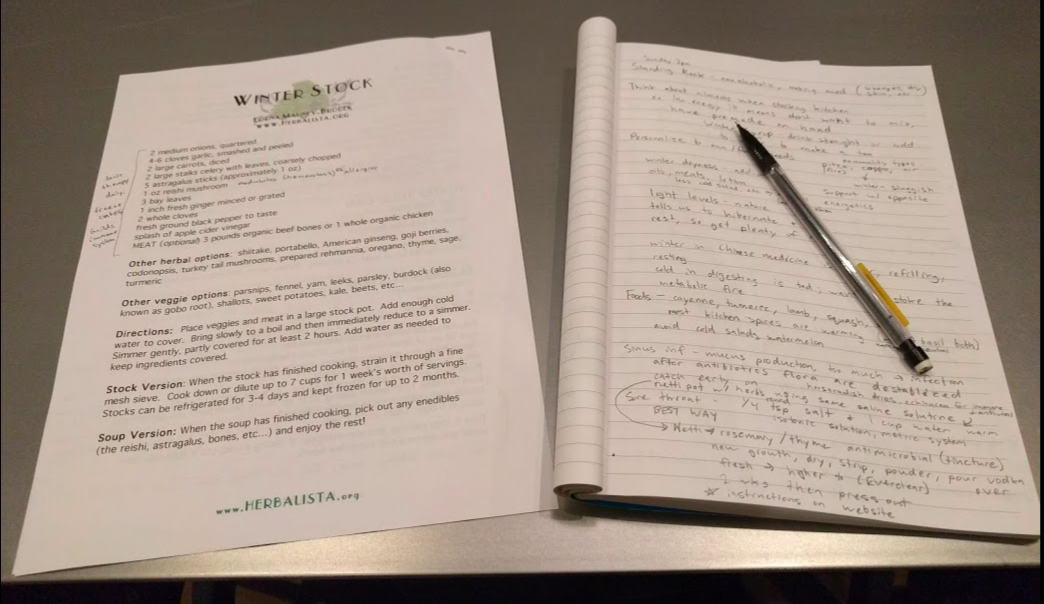 WINTER STOCK
www.HERBALISTA.ORG
2 medium onions, quartered
4-6 cloves garlic, smashed and peeled
2 large carrots, diced
2 large stalks celery with leaves, coarsely chopped
5 astragalus sticks (approximately 1 oz)
1 oz reishi mushroom
3 bay leaves
1 inch fresh ginger minced or grated
2 whole cloves
fresh ground black pepper to taste
splash of apple cider vinegar
MEAT (optional) 3 pounds organic beef bones or 1 whole organic chicken
Other herbal options: shiitake, portabello, American ginseng, goji berries,
codonopsis, turkey tail mushrooms, prepared rehmannia, oregano, thyme, sage,
turmeric
Other veggie options: parsnips, fennel, yam, leeks, parsley, burdock (also
known as gobo root), shallots, sweet potatoes, kale, beets, etc...
Directions: Place veggies and meat in a large stock pot. Add enough cold
water to cover. Bring slowly to a boil and then immediately reduce to a simmer.
Simmer gently, partly covered for at least 2 hours. Add water as needed to
keep ingredients covered.
Stock Version: When the stock has finished cooking, strain it through a fine
mesh sieve. Cook down or dilute up to 7 cups for 1 week's worth of servings.
Stocks can be refrigerated for 3-4 days and kept frozen for up to 2 months.
Soup Version: When the soup has finished cooking, pick out any enedibles
(the reishi, astragalus, bones, etc...) and enjoy the rest!
www.HERBALISTA.org
Think about ailments when stocking kitchen
low energy means don't want to mix,
have premade on hand
drink straight or add
to make a tea
Personalize
winter dryness - add
oils, meats,
winter - sluggish
support w/ opposite
energetics
light levels - nature
tells us to hibernate
rest, so get plenty of
winter in Chinese medicine refilling,
resting
cold in digestion is bad, the
metabolic fire
Foods - cayenne, tumeric, lamb, squash,
most kitchen spices are warming
avoid cold salads, watermelon
Sinus inf - mucus production, too much → infection
after antibiotics flora are destabilized
catch early on
netti pot w/ herbs using same saline solution
Sore throat - 1/4 tsp salt + 1 cup water warm
BEST WAY isotonic solution, metric system
→ Netti → rosemary / thyme antimicrobial (tincture)
new growth, dry, strip, powder, pour vodka
over
fresh → higher (Everclear)
2 wks then press out
☆ instructions on website